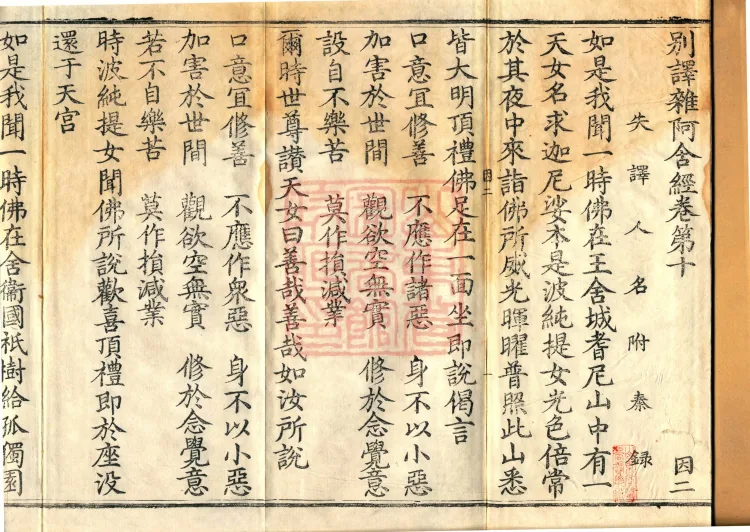 別譯雜阿含經卷第十
因二
失譯人名附秦錄
如是我聞一時佛在王舍城耆尼山中有一
天女名求迦尼娑本是波純提女光色倍常
於其夜中來詣佛所威光暉曜普照此山悉
因二
皆大明頂禮佛足在一面坐即說偈言
口意宜修善 不應作諸惡 身不以小惡
加害於世間 觀欲空無實 修於念覺意
設自不樂苦 莫作損減業
爾時世尊讚天女曰善哉善哉如汝所說
口意宜修善 不應作衆惡 身不以小惡
加害於世間 觀欲空無實 修於念覺意
若不自樂苦 莫作損減業
時波純提女聞佛所說歡喜頂禮即於座沒
還于天宮
如是我聞一時佛在舍衞國祇樹給孤獨園